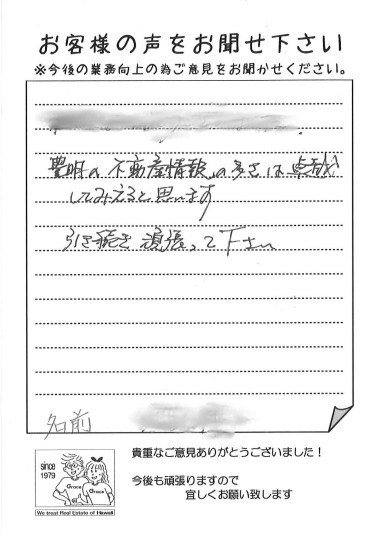 お客様の声をお聞せ下さい
※今後の業務向上の為ご意見をお聞かせください。
豊明の不動産情報の多さは卓越
してみえると思います
引き続き頑張って下さい
名前
since
1979
Grace
Grace
We trust Real Estate of Hawaii
貴重なご意見ありがとうございました!
今後も頑張りますので
宜しくお願い致します